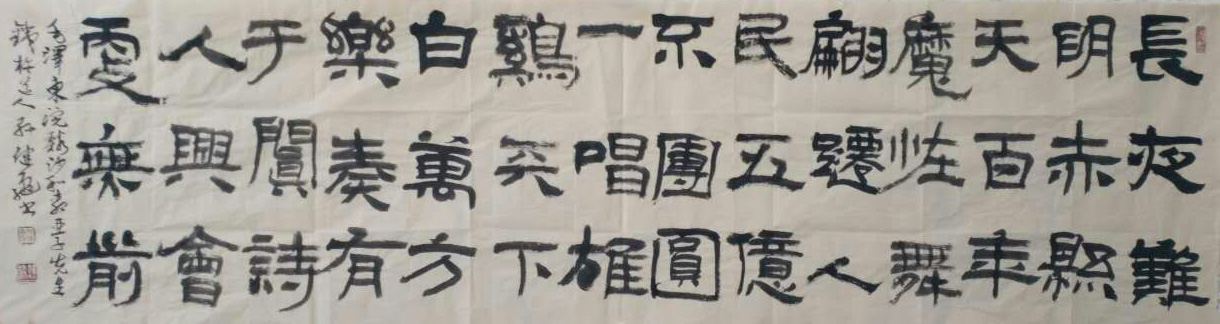 長夜難
明赤縣
天百年
魔怪舞
翩躚人
民五億
不團圓
一唱雄
鷄天下
白萬方
樂奏有
于闐詩
人興會
更無前
毛澤東浣溪沙和柳亞子先生
道人書